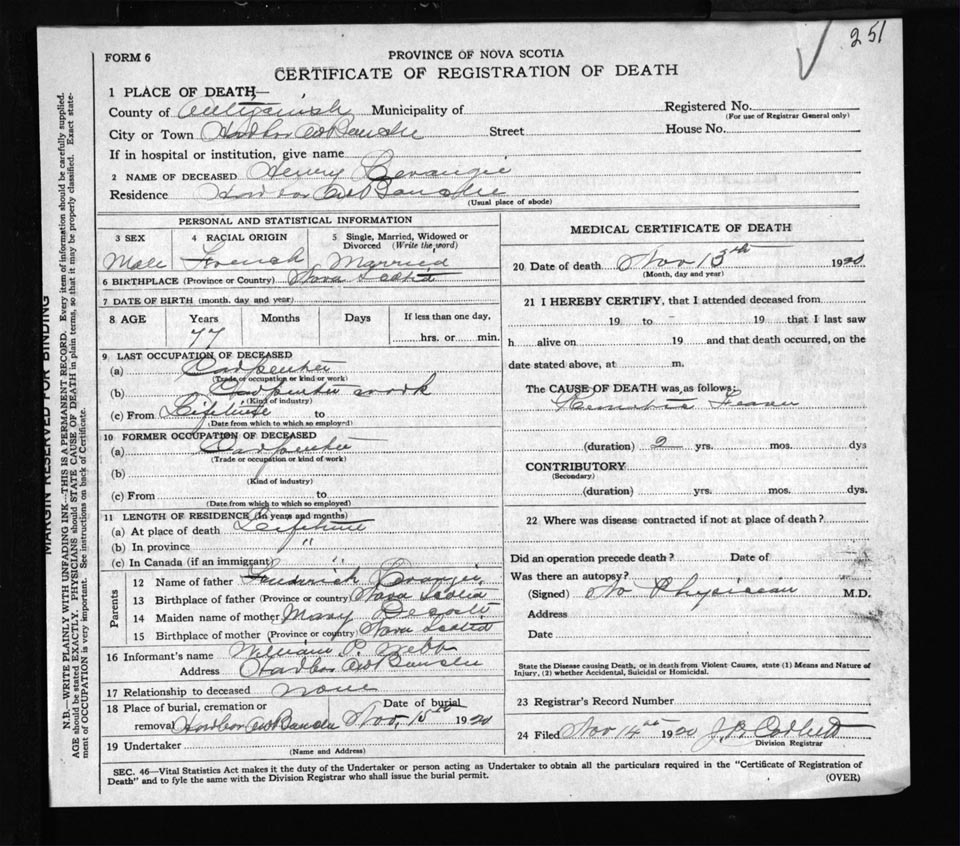 251
FORM 6
PROVINCE OF NOVA SCOTIA
CERTIFICATE OF REGISTRATION OF DEATH
1 PLACE OF DEATH—
County of Antigonish Municipality of Registered No.
(For use of Registrar General only)
City or Town Harbor Au Bouche Street House No.
If in hospital or institution, give name
2 NAME OF DECEASED Henry
Residence Harbor Au Bouche
(Usual place of abode)
PERSONAL AND STATISTICAL INFORMATION
3 SEX 4 RACIAL ORIGIN 5 Single, Married, Widowed or Divorced (Write the word)
Male French Married
6 BIRTHPLACE (Province or Country) Nova Scotia
7 DATE OF BIRTH (month, day and year)
8 AGE Years Months Days If less than one day,
77 hrs. or min.
9 LAST OCCUPATION OF DECEASED
(a) Carpenter
(Trade or occupation or kind of work)
(b) Carpenter work
(Kind of industry)
(c) From Lifetime to
(Date from which to which so employed)
10 FORMER OCCUPATION OF DECEASED
(a) Carpenter
(Trade or occupation or kind of work)
(b)
(Kind of industry)
(c) From to
(Date from which to which so employed)
11 LENGTH OF RESIDENCE (In years and months)
(a) At place of death Lifetime
(b) In province "
(c) In Canada (if an immigrant) "
Parents
12 Name of father Frederick
13 Birthplace of father (Province or country) Nova Scotia
14 Maiden name of mother Mary
15 Birthplace of mother (Province or country) Nova Scotia
16 Informant's name William P. Webb
Address Harbor Au Bouche
17 Relationship to deceased none
18 Place of burial, cremation or Date of burial
removal Harbor Au Bouche Nov. 15th 1920
19 Undertaker
(Name and Address)
MEDICAL CERTIFICATE OF DEATH
20 Date of death Nov 13th 1920
(Month, day and year)
21 I HEREBY CERTIFY, that I attended deceased from
19 to 19 that I last saw
h alive on 19 and that death occurred, on the
date stated above, at m.
The CAUSE OF DEATH was as follows:
(duration) 2 yrs. mos. dys
CONTRIBUTORY
(Secondary)
(duration) yrs. mos. dys.
22 Where was disease contracted if not at place of death?
Did an operation precede death? Date of
Was there an autopsy?
(Signed) No Physician M.D.
Address
Date
State the Disease causing Death, or in death from Violent Causes, state (1) Means and Nature of
Injury, (2) whether Accidental, Suicidal or Homicidal.
23 Registrar's Record Number
24 Filed Nov 14th 1920 J. B. Corbett
Division Registrar
SEC. 46—Vital Statistics Act makes it the duty of the Undertaker or person acting as Undertaker to obtain all the particulars required in the "Certificate of Registration of
Death" and to fyle the same with the Division Registrar who shall issue the burial permit.
(OVER)
MARGIN RESERVED FOR BINDING
N.B.—WRITE PLAINLY WITH UNFADING INK—THIS IS A PERMANENT RECORD. Every item of information should be carefully supplied.
AGE should be stated EXACTLY. PHYSICIANS should STATE CAUSE OF DEATH in plain terms, so that it may be properly classified. Exact state-
ment of OCCUPATION is very important. See instructions on back of Certificate.